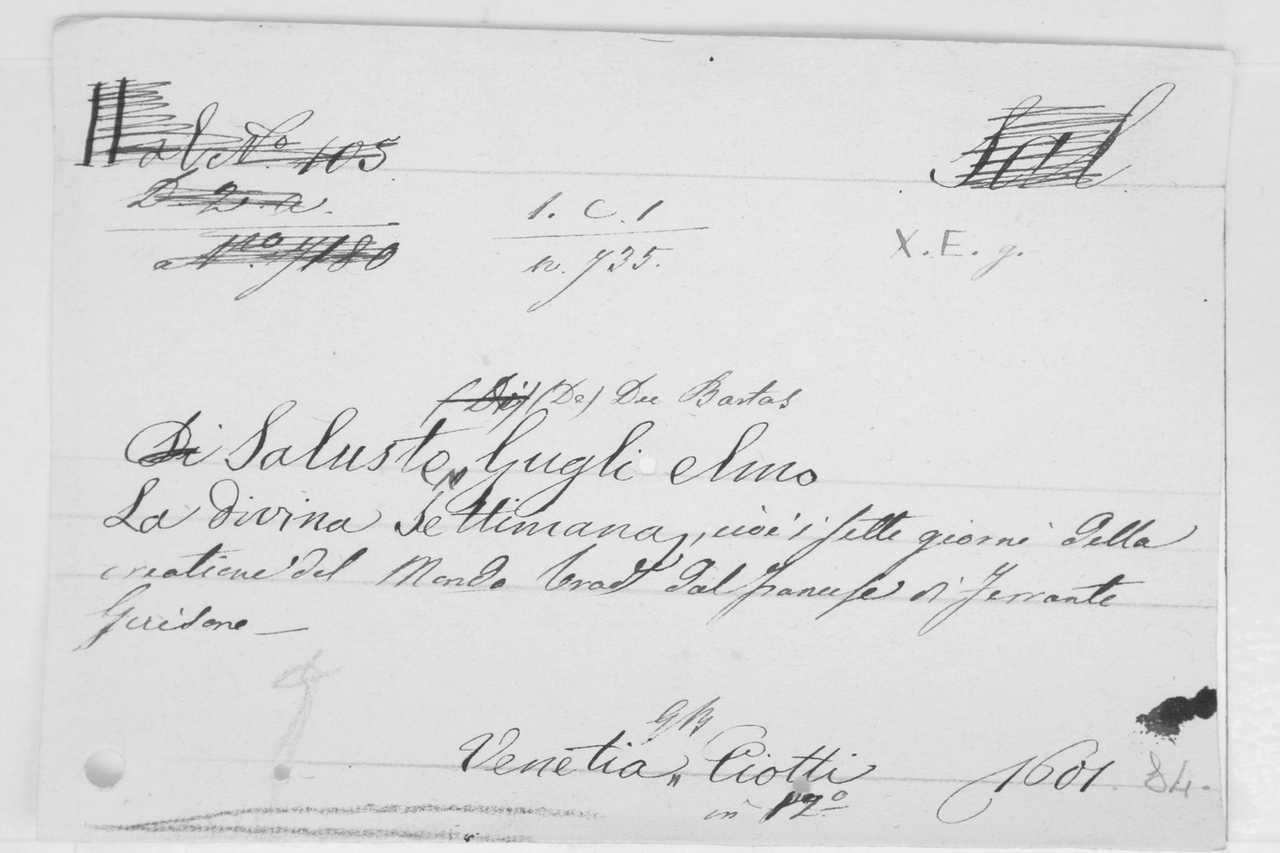 al No. 105
D. 2. a.
a No. 7180
1. C. 1
n. 735.
X. E. g.
(Di) (De) Du Bartas
Di Saluste, Gugli elmo
La divina Settimana, cioè i sette giorni della
creatione del Mondo trad. dal francese di Ferrante
Guisone —
GB
Venetia, Ciotti 1601. 84.
in 12.o